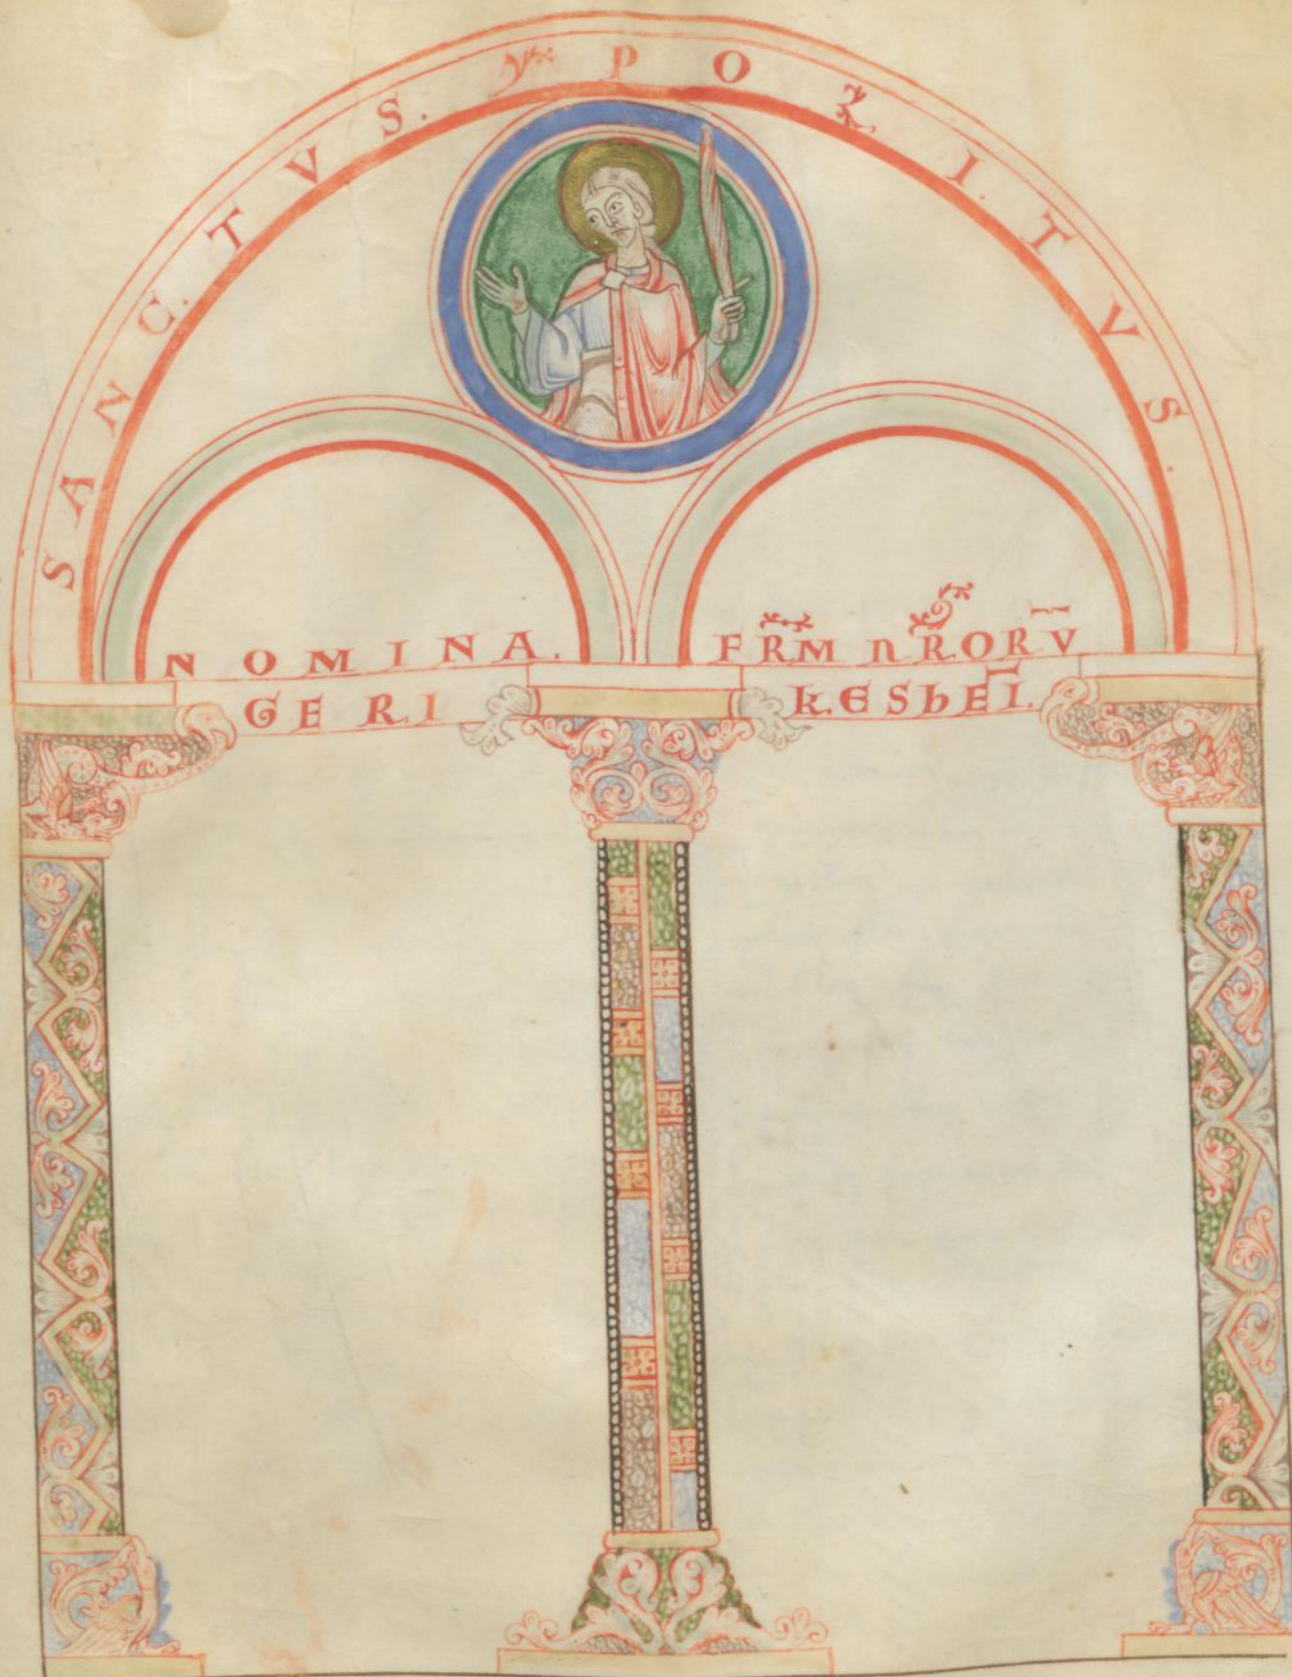 SANC.TVS. YPOLI.TVS.
NOMINA. FR̄M NR̄ORV̄
GERI KESHEĪ.